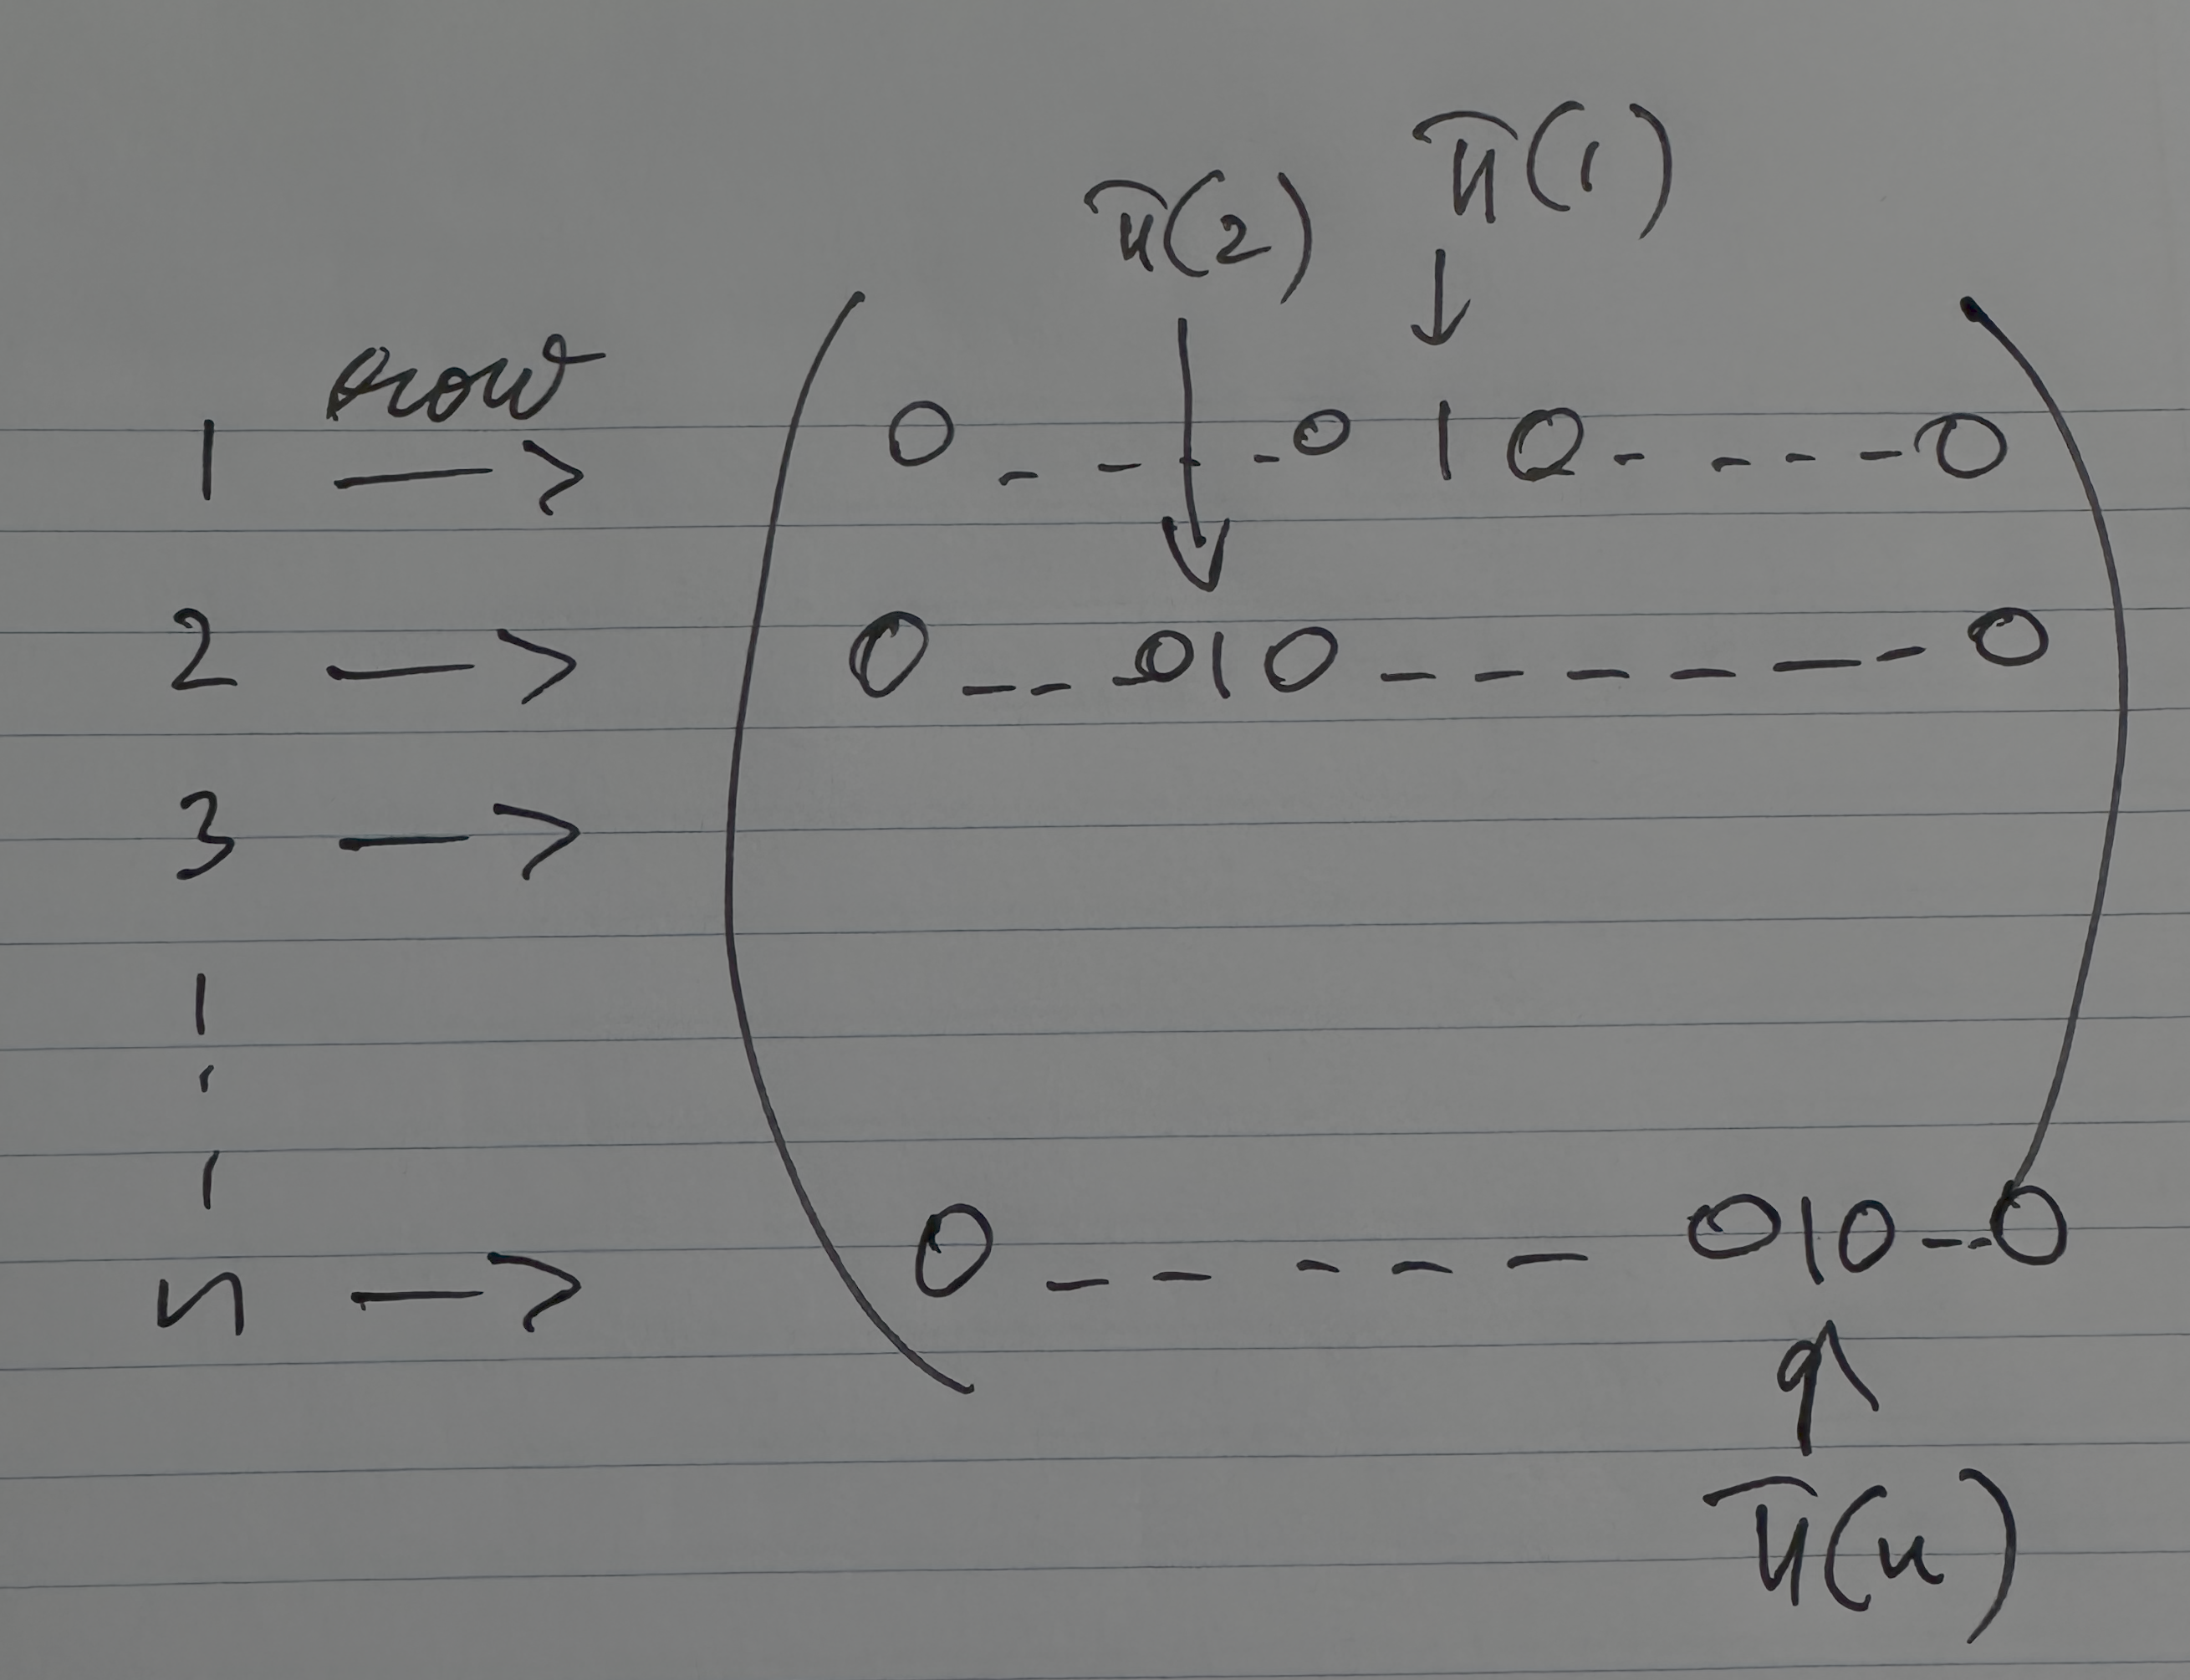 π(1)
π(2)
row
1 → 0 - - - 0 1 0 - - - - 0
2 → 0 - - - 0 1 0 - - - - - - - 0
3 →
n → 0 - - - - - 0 1 0 - - 0
π(n)